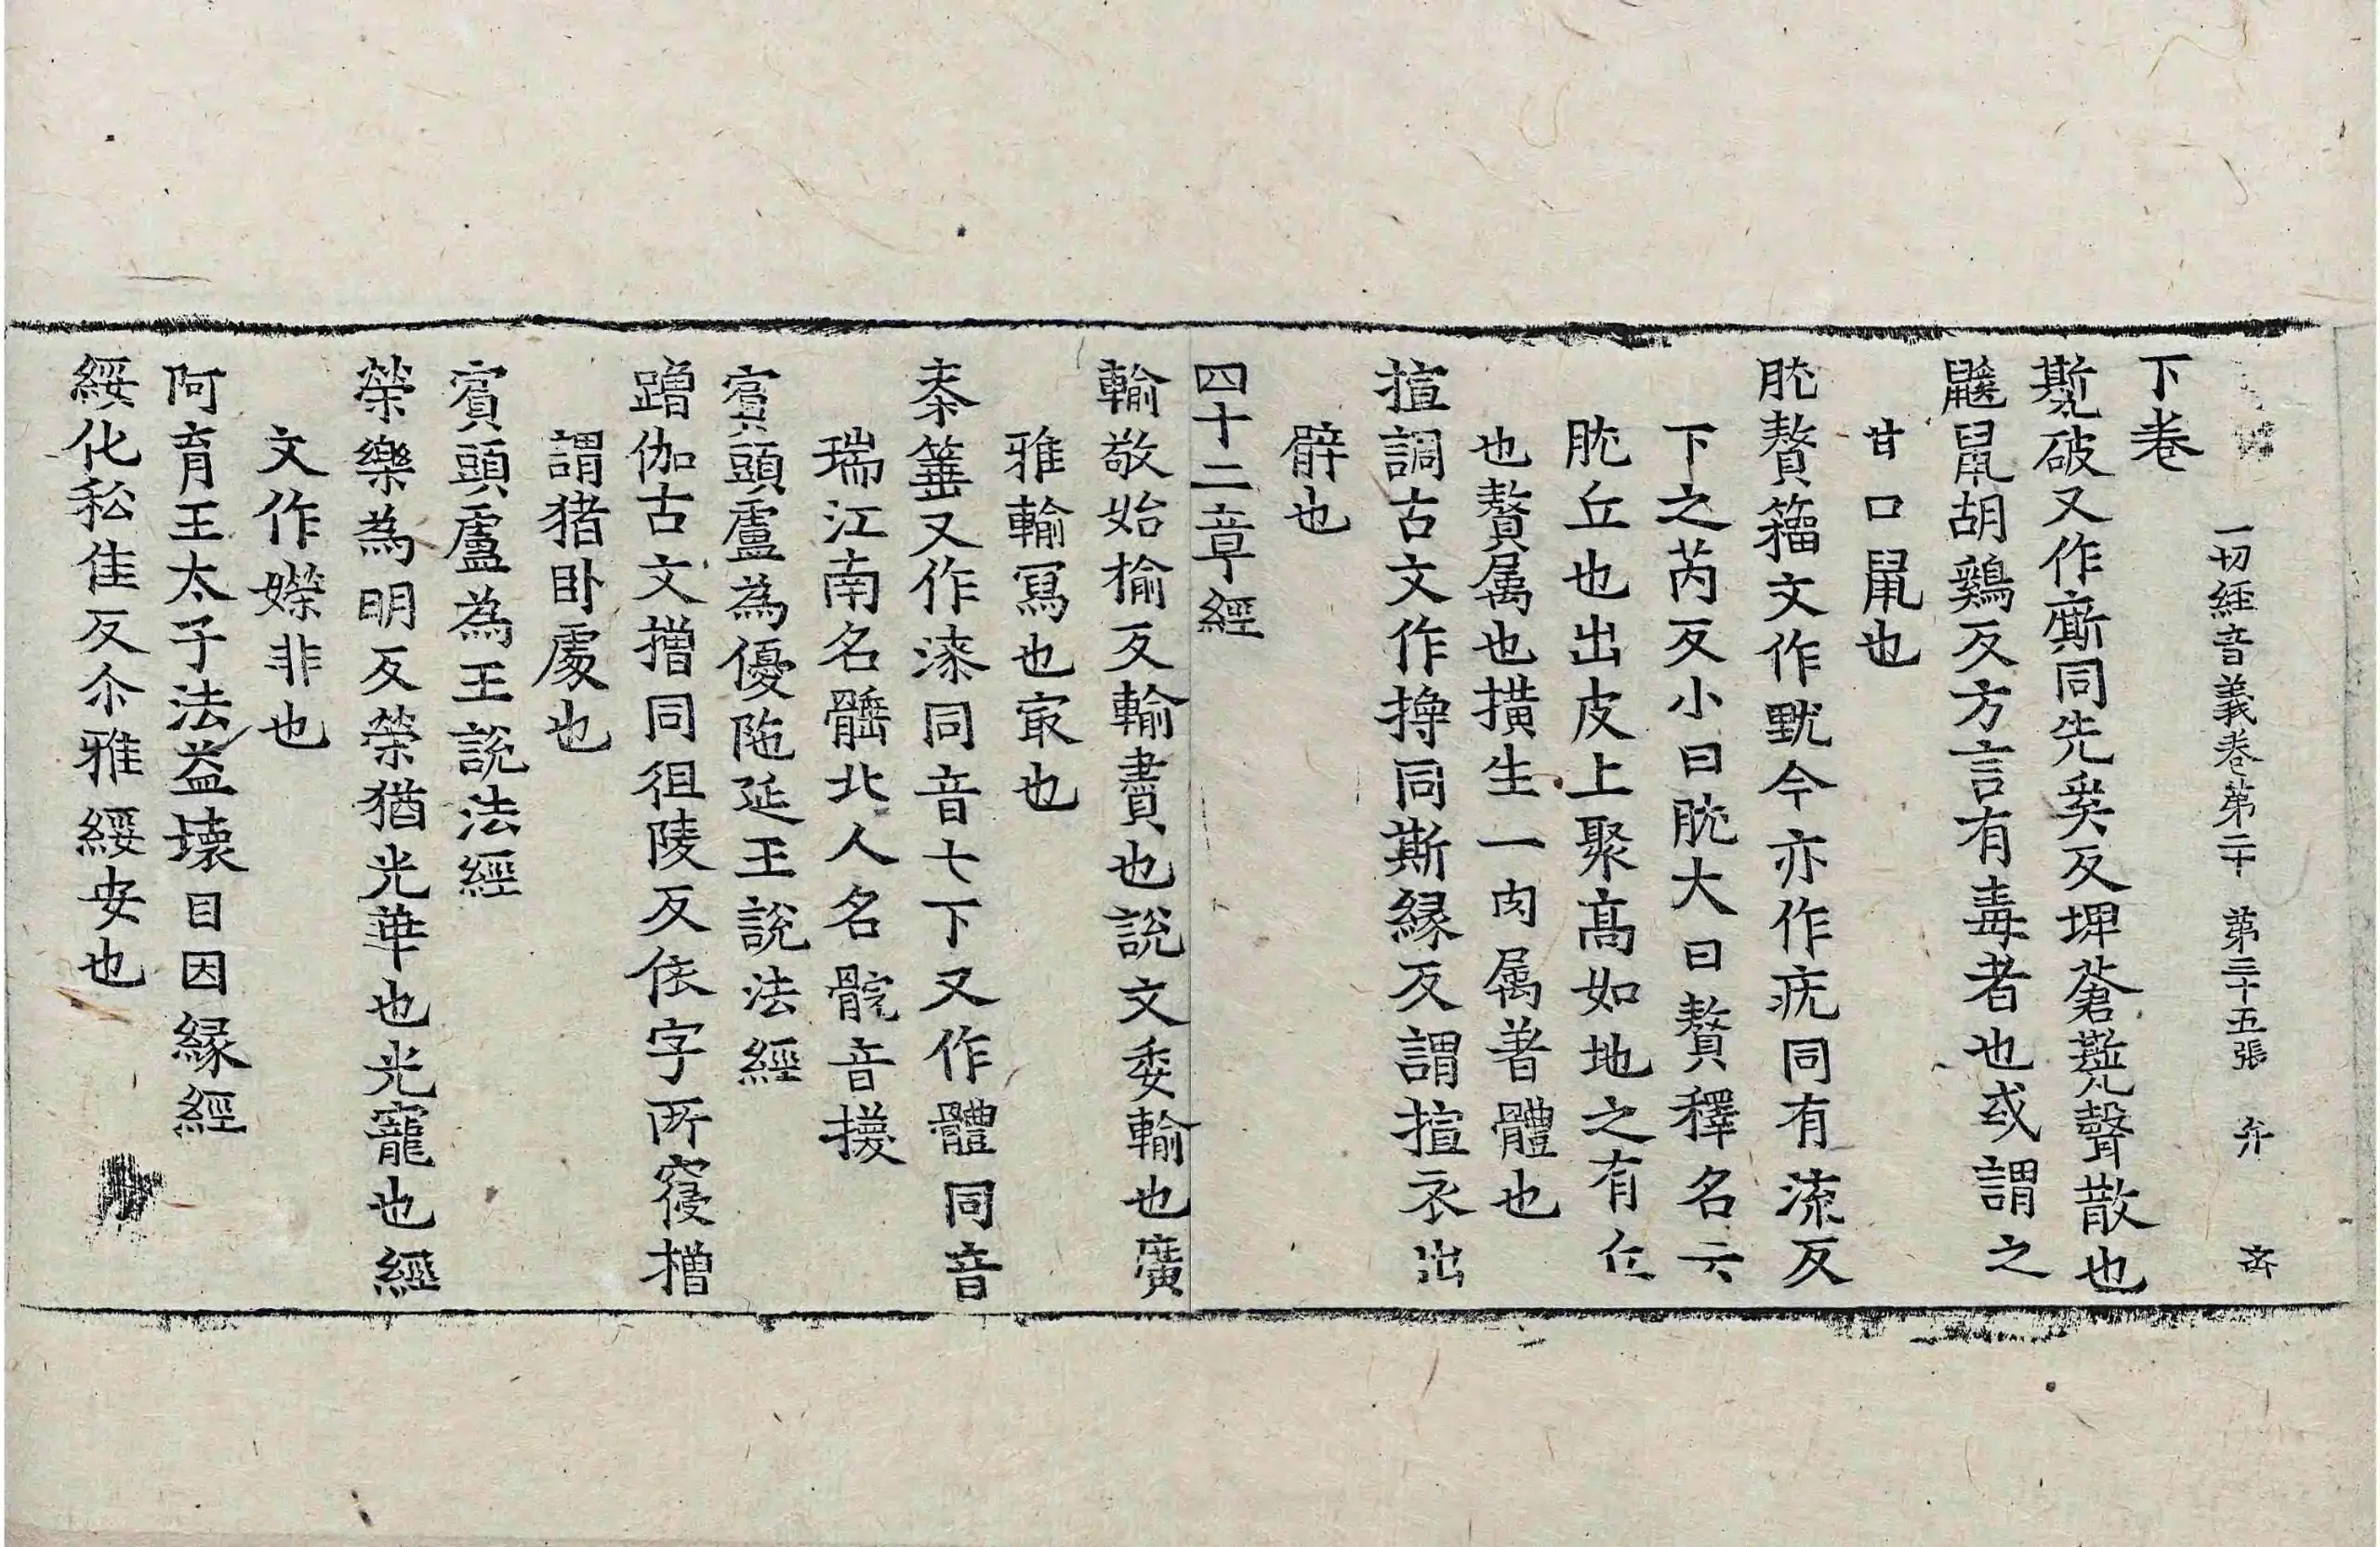 一切経音義卷第二十 第三十五張 弁
下卷
㽄破又作廝同先奚反埤蒼㽄聲散也
鼷鼠胡鷄反方言有毒者也或謂之
甘口鼠也
肬贅籀文作黖今亦作疣同有流反
下之芮反小曰肬大曰贅釋名云
肬丘也出皮上聚髙如地之有丘
也贅属也橫生一肉属著體也
揎調古文作㩊同斯縁反謂揎衣出
臂也
四十二章經
輸敬始榆反輸賣也説文委輸也廣
雅輸寫也㝡也
桼箠又作漆同音七下又作體同音
瑞江南名䯝北人名䯘音擭
賔頭盧為優陁延王説法經
蹭伽古文㬝同徂陵反依字所寑橧
謂猪卧處也
賔頭盧為王説法經
榮樂為明反榮猶光華也光寵也經
文作嬫非也
阿育王太子法益壞目因縁經
綏化私隹反尒雅綏安也